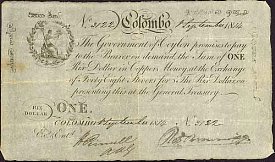 No. 3122 Colombo 1 September 1814
The Government of Ceylon promises to pay
to the Bearer on demand the Sum of ONE
Rix Dollar in Copper Money at the Exchange
of Forty Eight Stivers for The Rix Dollar on
presenting this at the General Treasury.
RIX DOLLAR ONE.
COLOMBO September 1814 No. 3122
Entd.